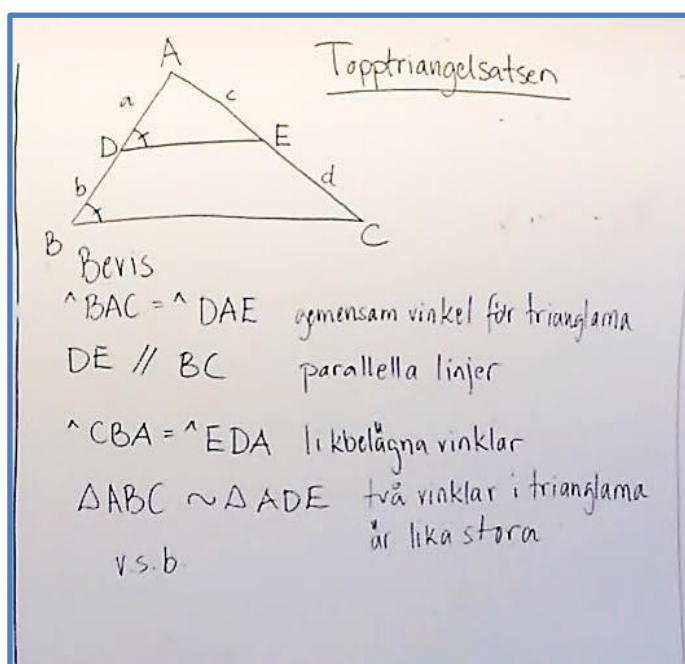 Topptriangelsatsen
A
a
c
D
E
b
d
B
C
Bevis
^BAC = ^DAE gemensam vinkel för trianglarna
DE // BC parallella linjer
^CBA = ^EDA likbelägna vinklar
△ABC ~ △ADE två vinklar i trianglarna
är lika stora
v.s.b.